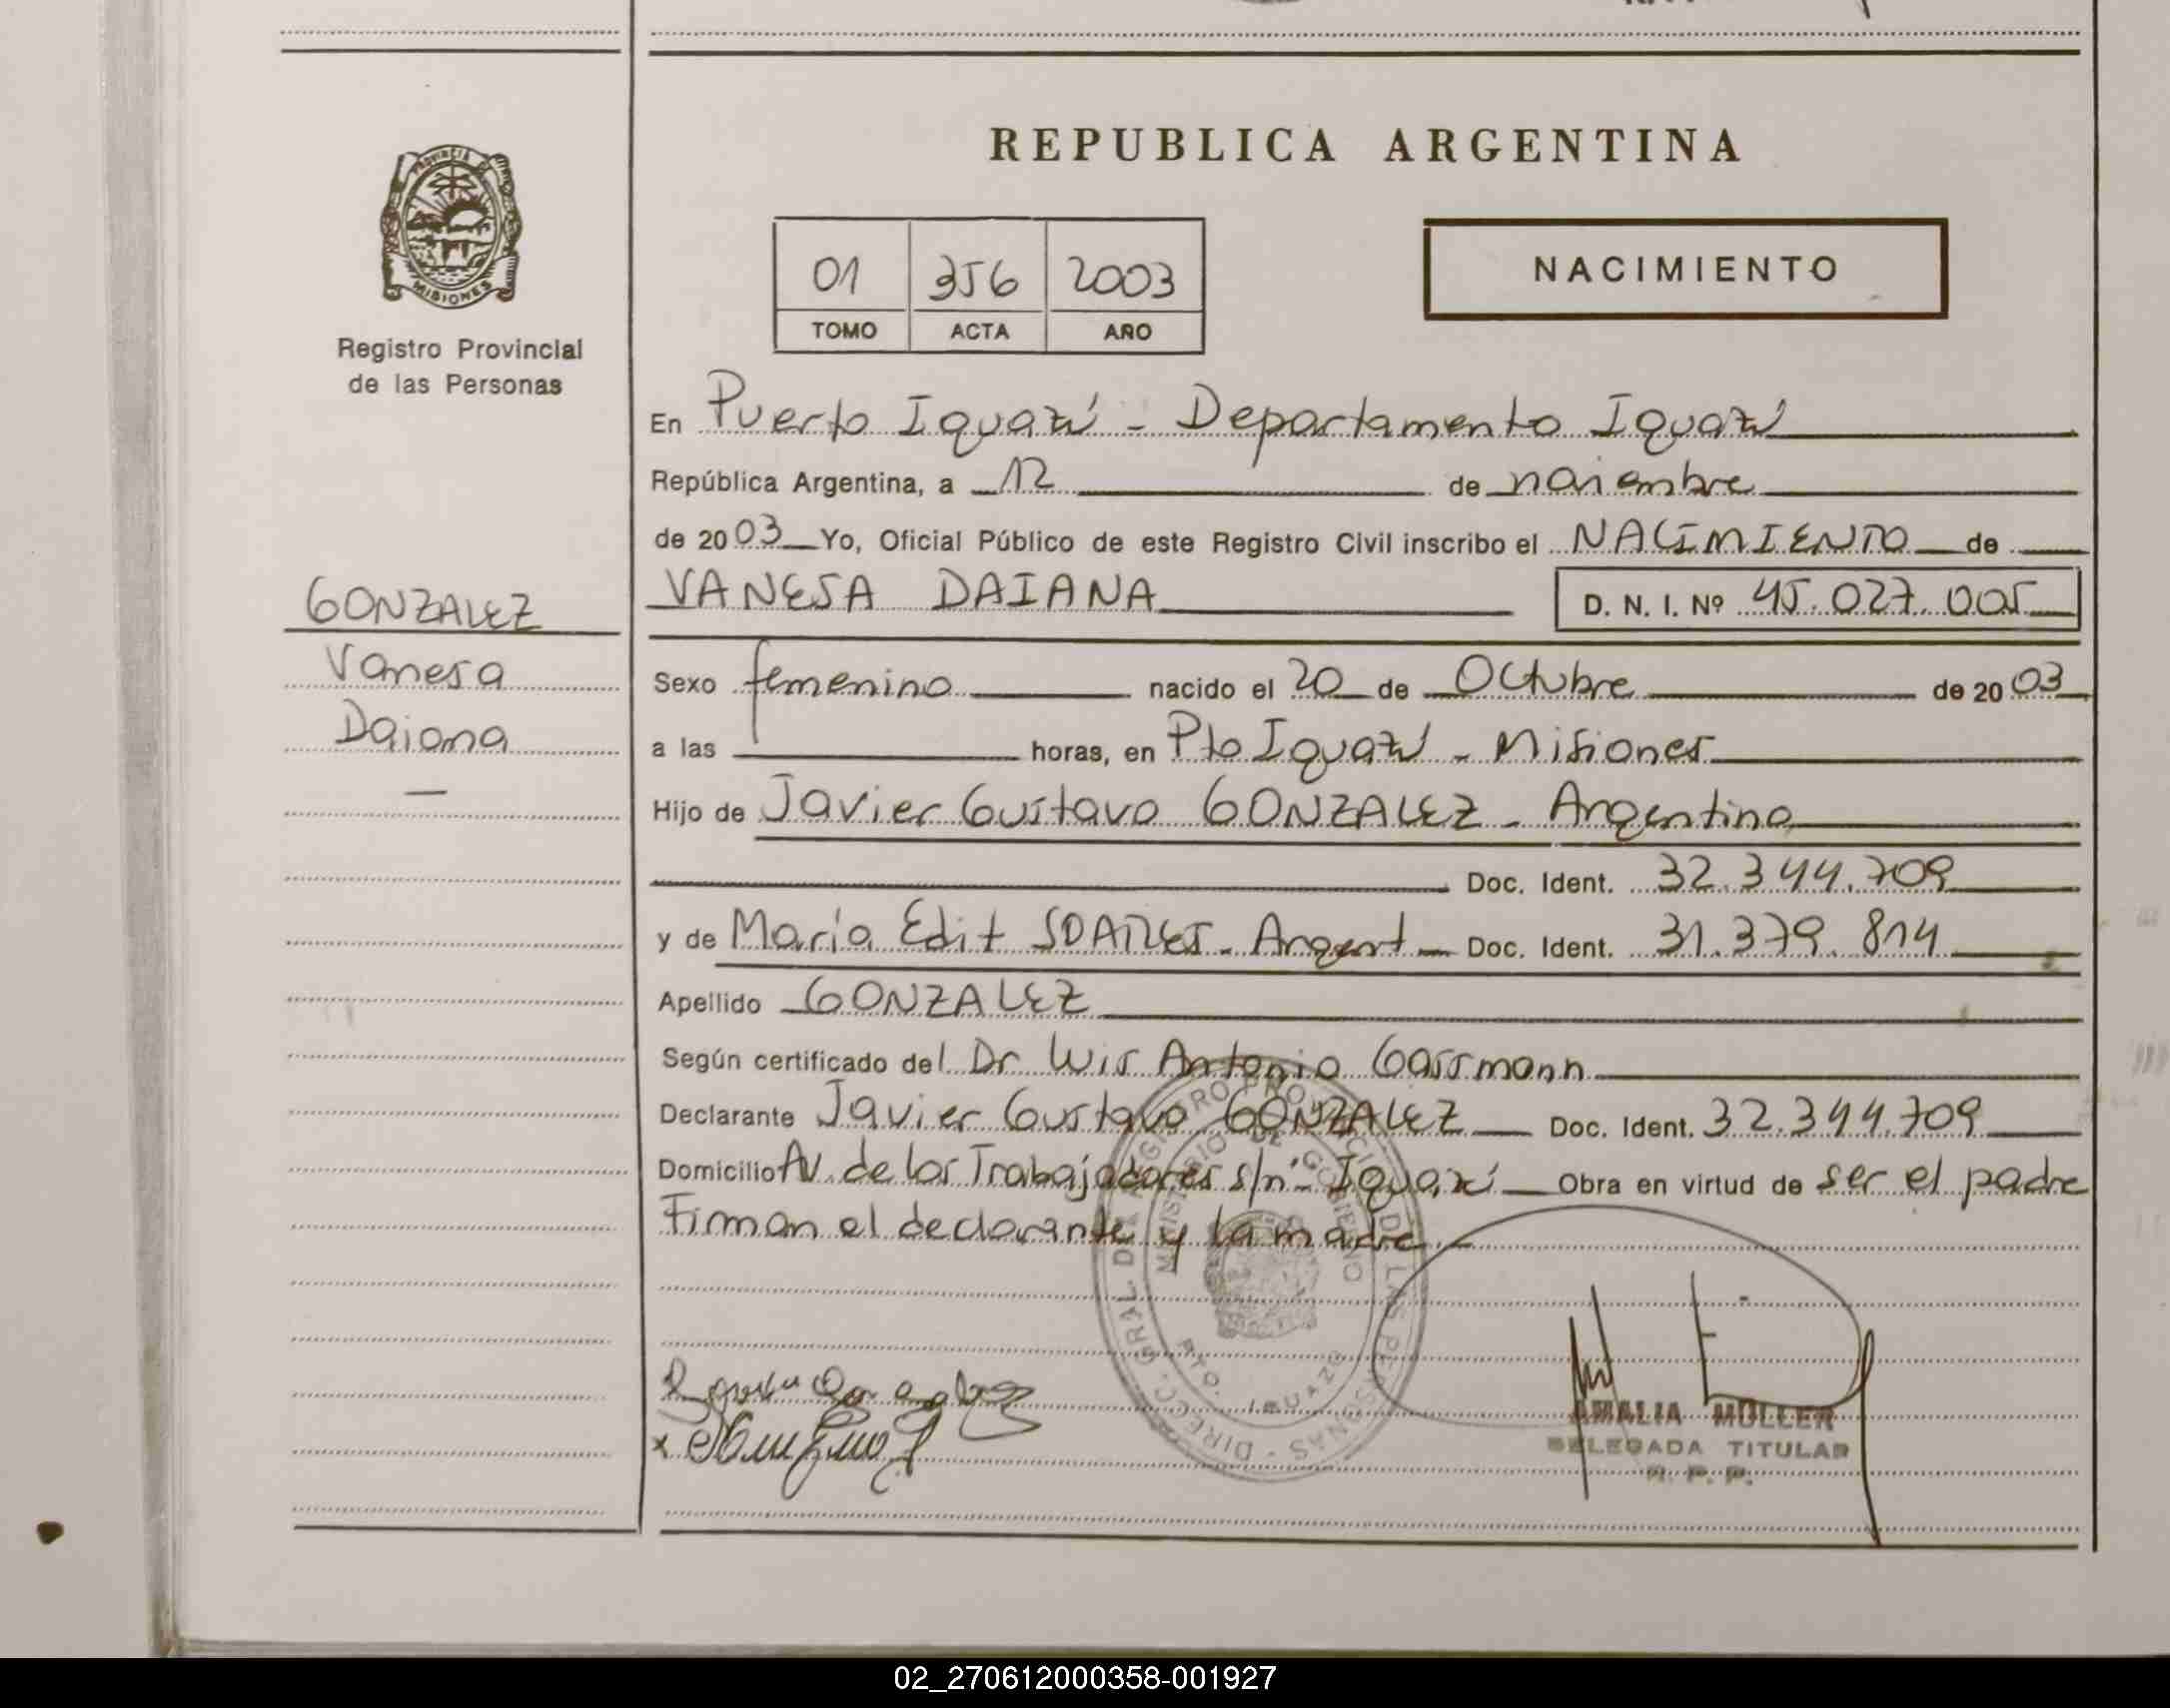 REPUBLICA ARGENTINA
PROVINCIA DE MISIONES
Registro Provincial
de las Personas
01 356 2003
TOMO ACTA AÑO
NACIMIENTO
En Puerto Iguazú - Departamento Iguazú
República Argentina, a 12 de noviembre
de 2003 Yo, Oficial Público de este Registro Civil inscribo el NACIMIENTO de
VANESA DAIANA D. N. I. Nº 45.027.005
GONZALEZ
Vanesa
Daiana
Sexo femenino nacido el 20 de Octubre de 2003
a las horas, en Pto Iguazú - Misiones
Hijo de Javier Gustavo GONZALEZ - Argentino
Doc. Ident. 32.344.709
y de María Edit SOARES - Argent - Doc. Ident. 31.379.814
Apellido GONZALEZ
Según certificado del Dr Luis Antonio Gassmann
Declarante Javier Gustavo GONZALEZ Doc. Ident. 32.344.709
Domicilio Av. de los Trabajadores s/nº - Iguazú Obra en virtud de ser el padre
Firman el declarante y la madre -
DIREC. GRAL. DEL REGISTRO PROVINCIAL DE LAS PERSONAS
MINISTERIO DE GOBIERNO
PTO. IGUAZU
AMALIA MULLER
DELEGADA TITULAR
R. P. P.
02_270612000358-001927